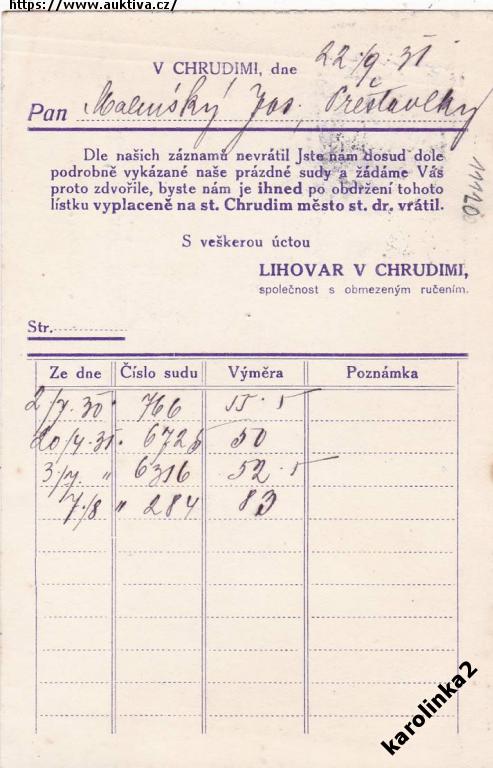 https://www.auktiva.cz/
V CHRUDIMI, dne 22./9. 31
Pan Malinský Jos., Přestavlky
11120
Dle našich záznamů nevrátil Jste nám dosud dole
podrobně vykázané naše prázdné sudy a žádáme Vás
proto zdvořile, byste nám je ihned po obdržení tohoto
lístku vyplaceně na st. Chrudim město st. dr. vrátil.
S veškerou úctou
LIHOVAR V CHRUDIMI,
společnost s obmezeným ručením.
Str.
Ze dne Číslo sudu Výměra Poznámka
2/7. 30. 766 55.5
20/4. 31. 6725 50
3/7. " 6316 52.5
7./8 " 284 83
karolinka2